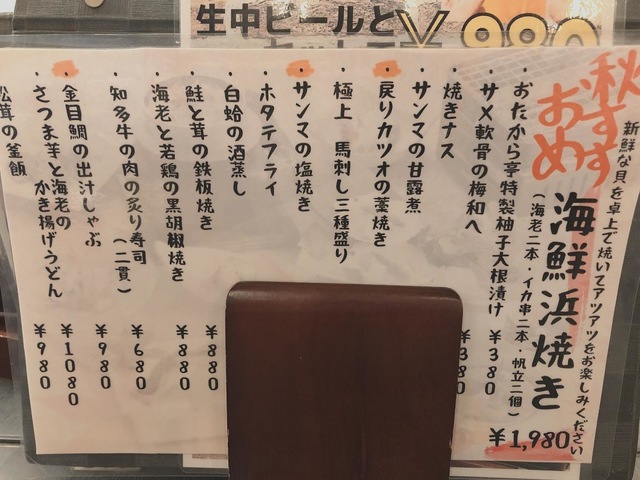 生中ビールと
¥980
秋
おすすめ
新鮮な貝を卓上で焼いてアツアツをお楽しみください
海鮮浜焼き
(海老二本・イカ串二本・帆立二個)
¥1,980
・おたから亭特製柚子大根漬け ¥380
・サメ軟骨の梅和へ ¥380
・焼きナス
・サンマの甘露煮
・戻りカツオの藁焼き
・極上 馬刺し三種盛り
・サンマの塩焼き
・ホタテフライ
・白蛤の酒蒸し
・鮭と茸の鉄板焼き ¥880
・海老と若鶏の黒胡椒焼き ¥880
・知多牛の肉の炙り寿司(二貫) ¥680
・金目鯛の出汁しゃぶ ¥980
・さつま芋と海老の ¥1080
かき揚げうどん ¥980
松茸の釜飯